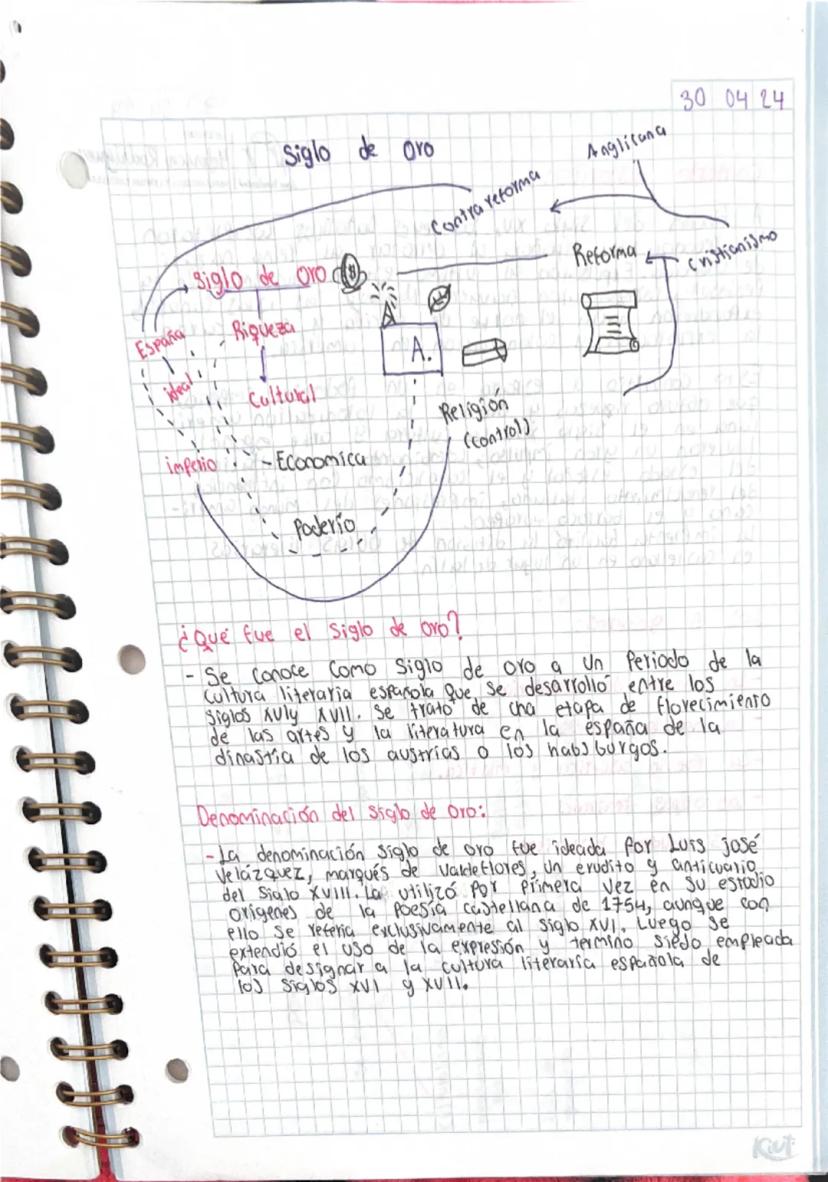 30 04 24
Siglo de oro
Anglicana
Contrareforma
Reforma
Cristianismo
Siglo de oro
España
Riqueza
A.
ideal
Cultural
Religión
(control)
imperio
- Economica
Poderío
¿Qué fue el siglo de oro?
- Se conoce como Siglo de oro a un Periodo de la
cultura literaria española que se desarrolló entre los
siglos XVI y XVII. Se trato de cha etapa de florecimiento
de las artes y la literatura en la españa de la
dinastía de los austrias o los habsburgos.
Denominación del siglo de oro:
- La denominación siglo de oro fue ideada por Luis josé
Velázquez, marqués de Valdeflores, un erudito y anticuario
del Siglo XVIII. La utilizó por primera vez en su estudio
orígenes de la poesía castellana de 1754, aunque con
ello se refería exclusivamente al siglo XVI. Luego se
extendió el uso de la expresión y termino siedo empleada
para designar a la cultura literaria española de
los siglos XVI y XVII.
Kiut